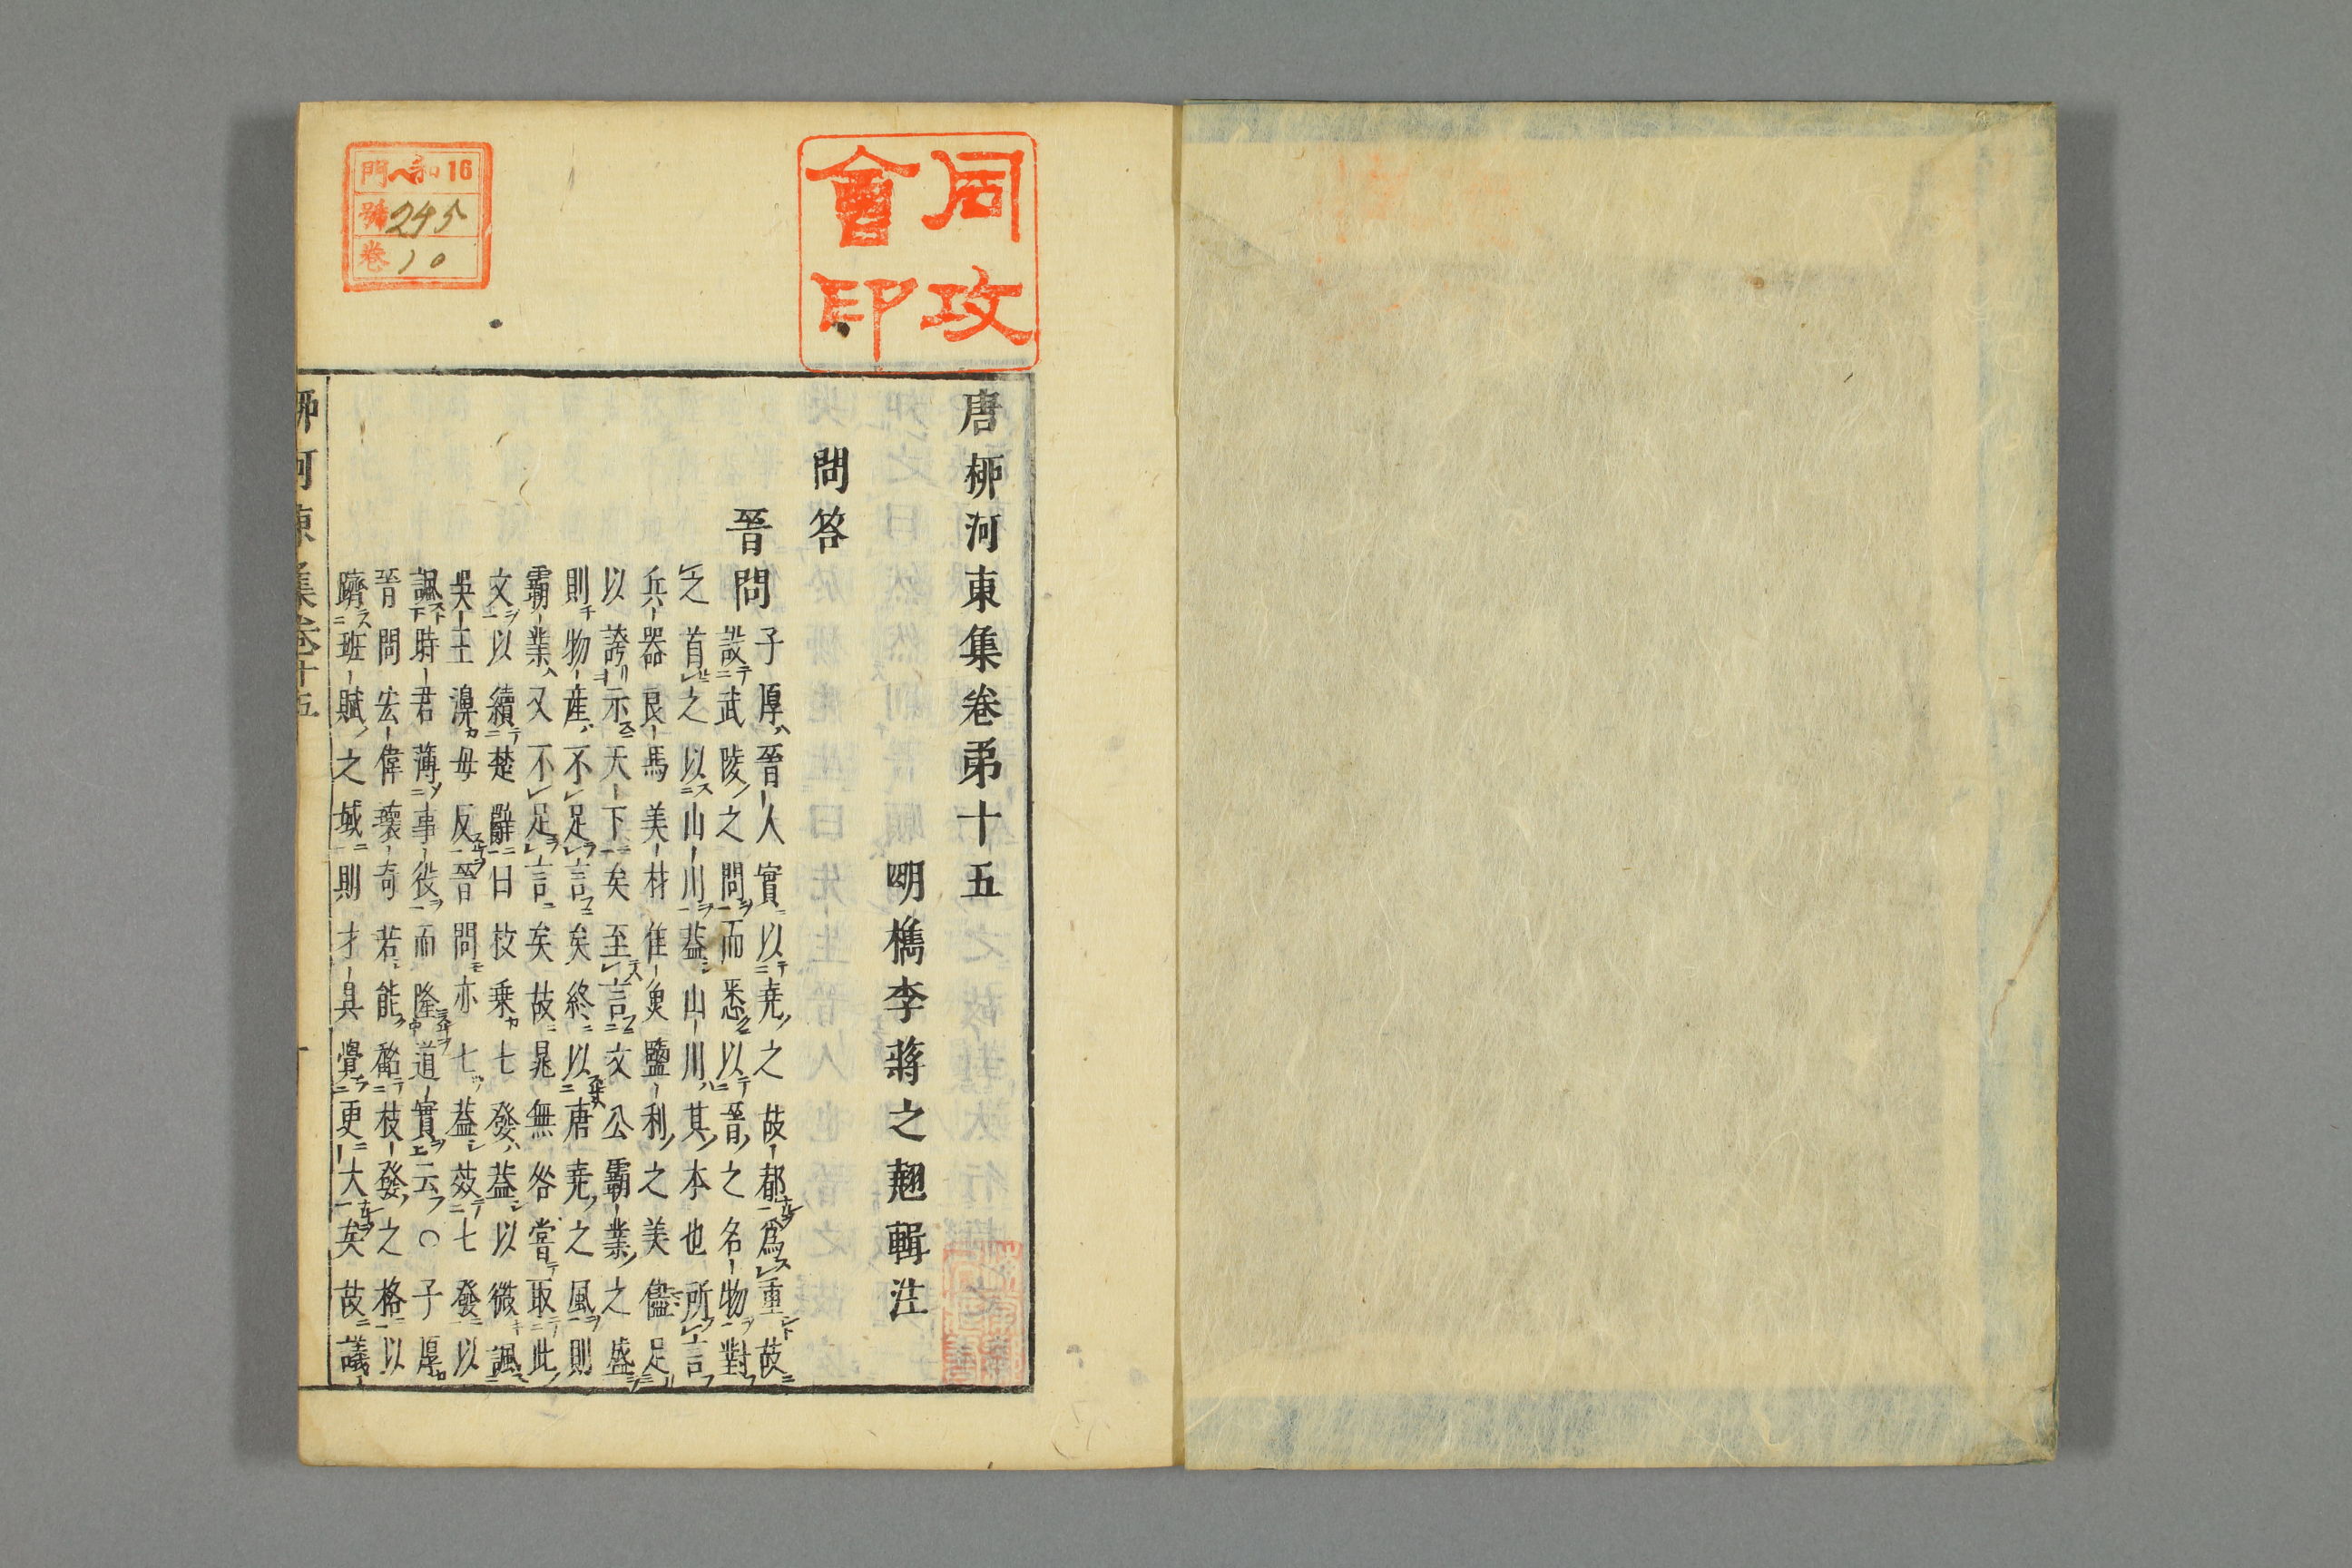 同攻
會印
和 16
門
號 245
卷 10
唐栁河東集卷苐十五
明檇李蔣之翹輯注
問答
晉問
子厚晉人實以堯之故都爲重故
設武陵之問而悉以晉之名物對
之首之以山川葢山川其本也所言
兵器良馬美材佳臾鹽利之美儘足
以誇示天下矣至言文公霸業之盛
則物産不足言矣終以唐堯之風則
霸業又不足言矣故晁無咎嘗取此
文以續楚辭曰枚乗七發葢以微諷
吳王濞毋反晉問亦七葢效七發以
諷時君薄事役而隆道實云○子厚
晉問宏偉瓌奇若能 枝發之格以
躋班賦之域則才具覺更大矣故議
栁河東集卷十五
一